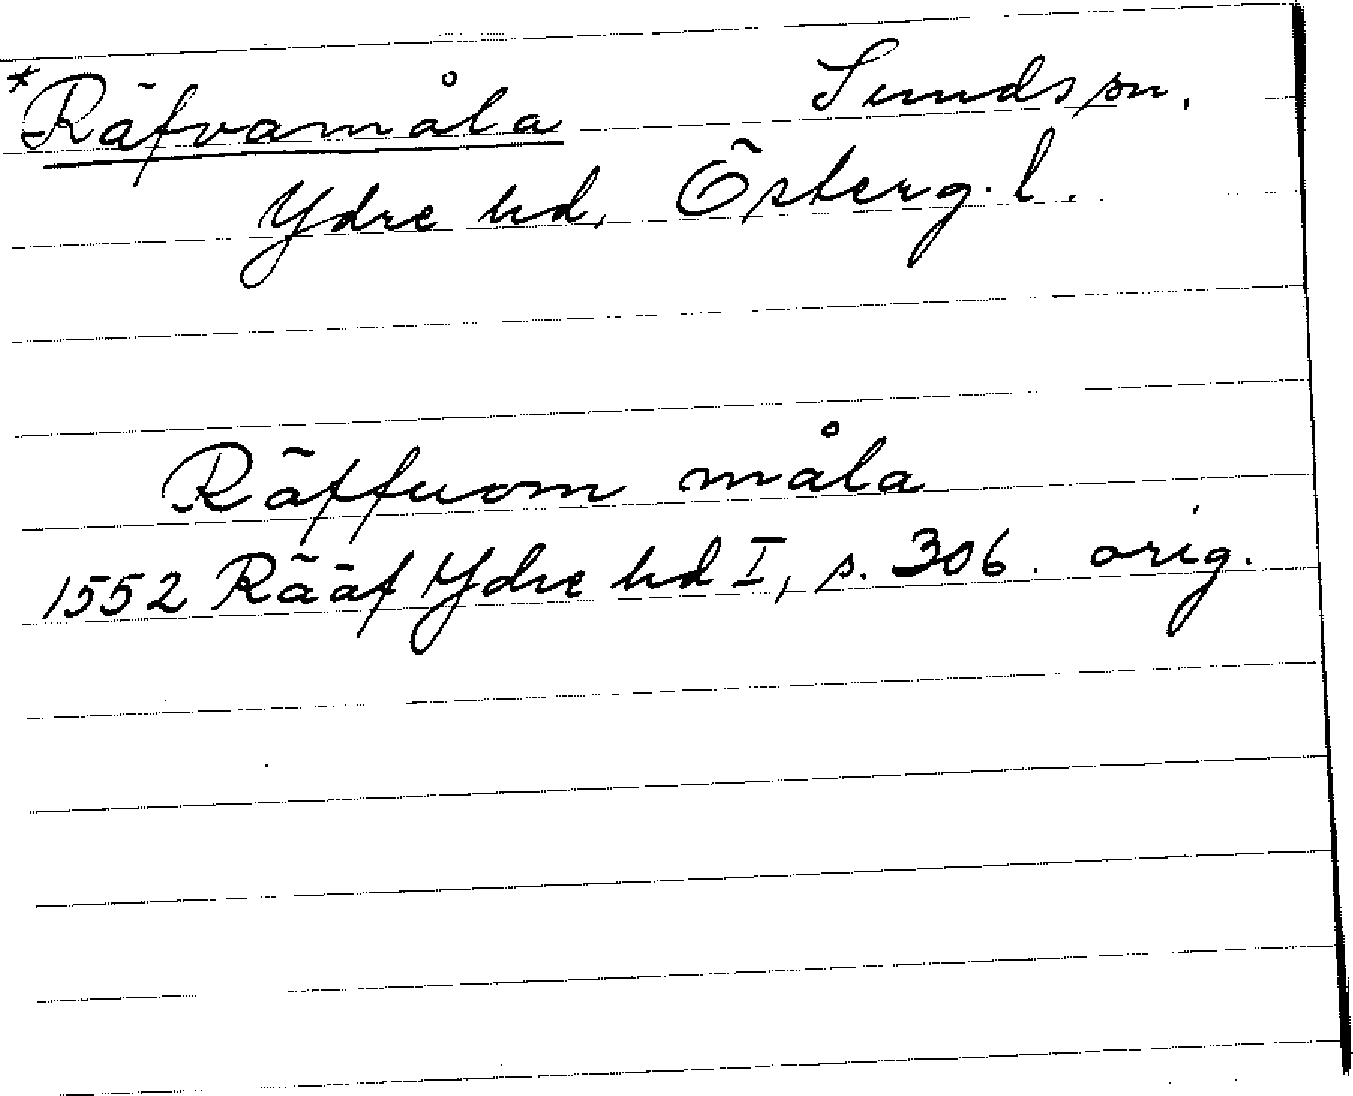 *Räfvamåla Sunds sn.
Ydre hd, Österg. l.
Räffuom måla
1552 Rääf Ydre hd I, s. 306. orig.